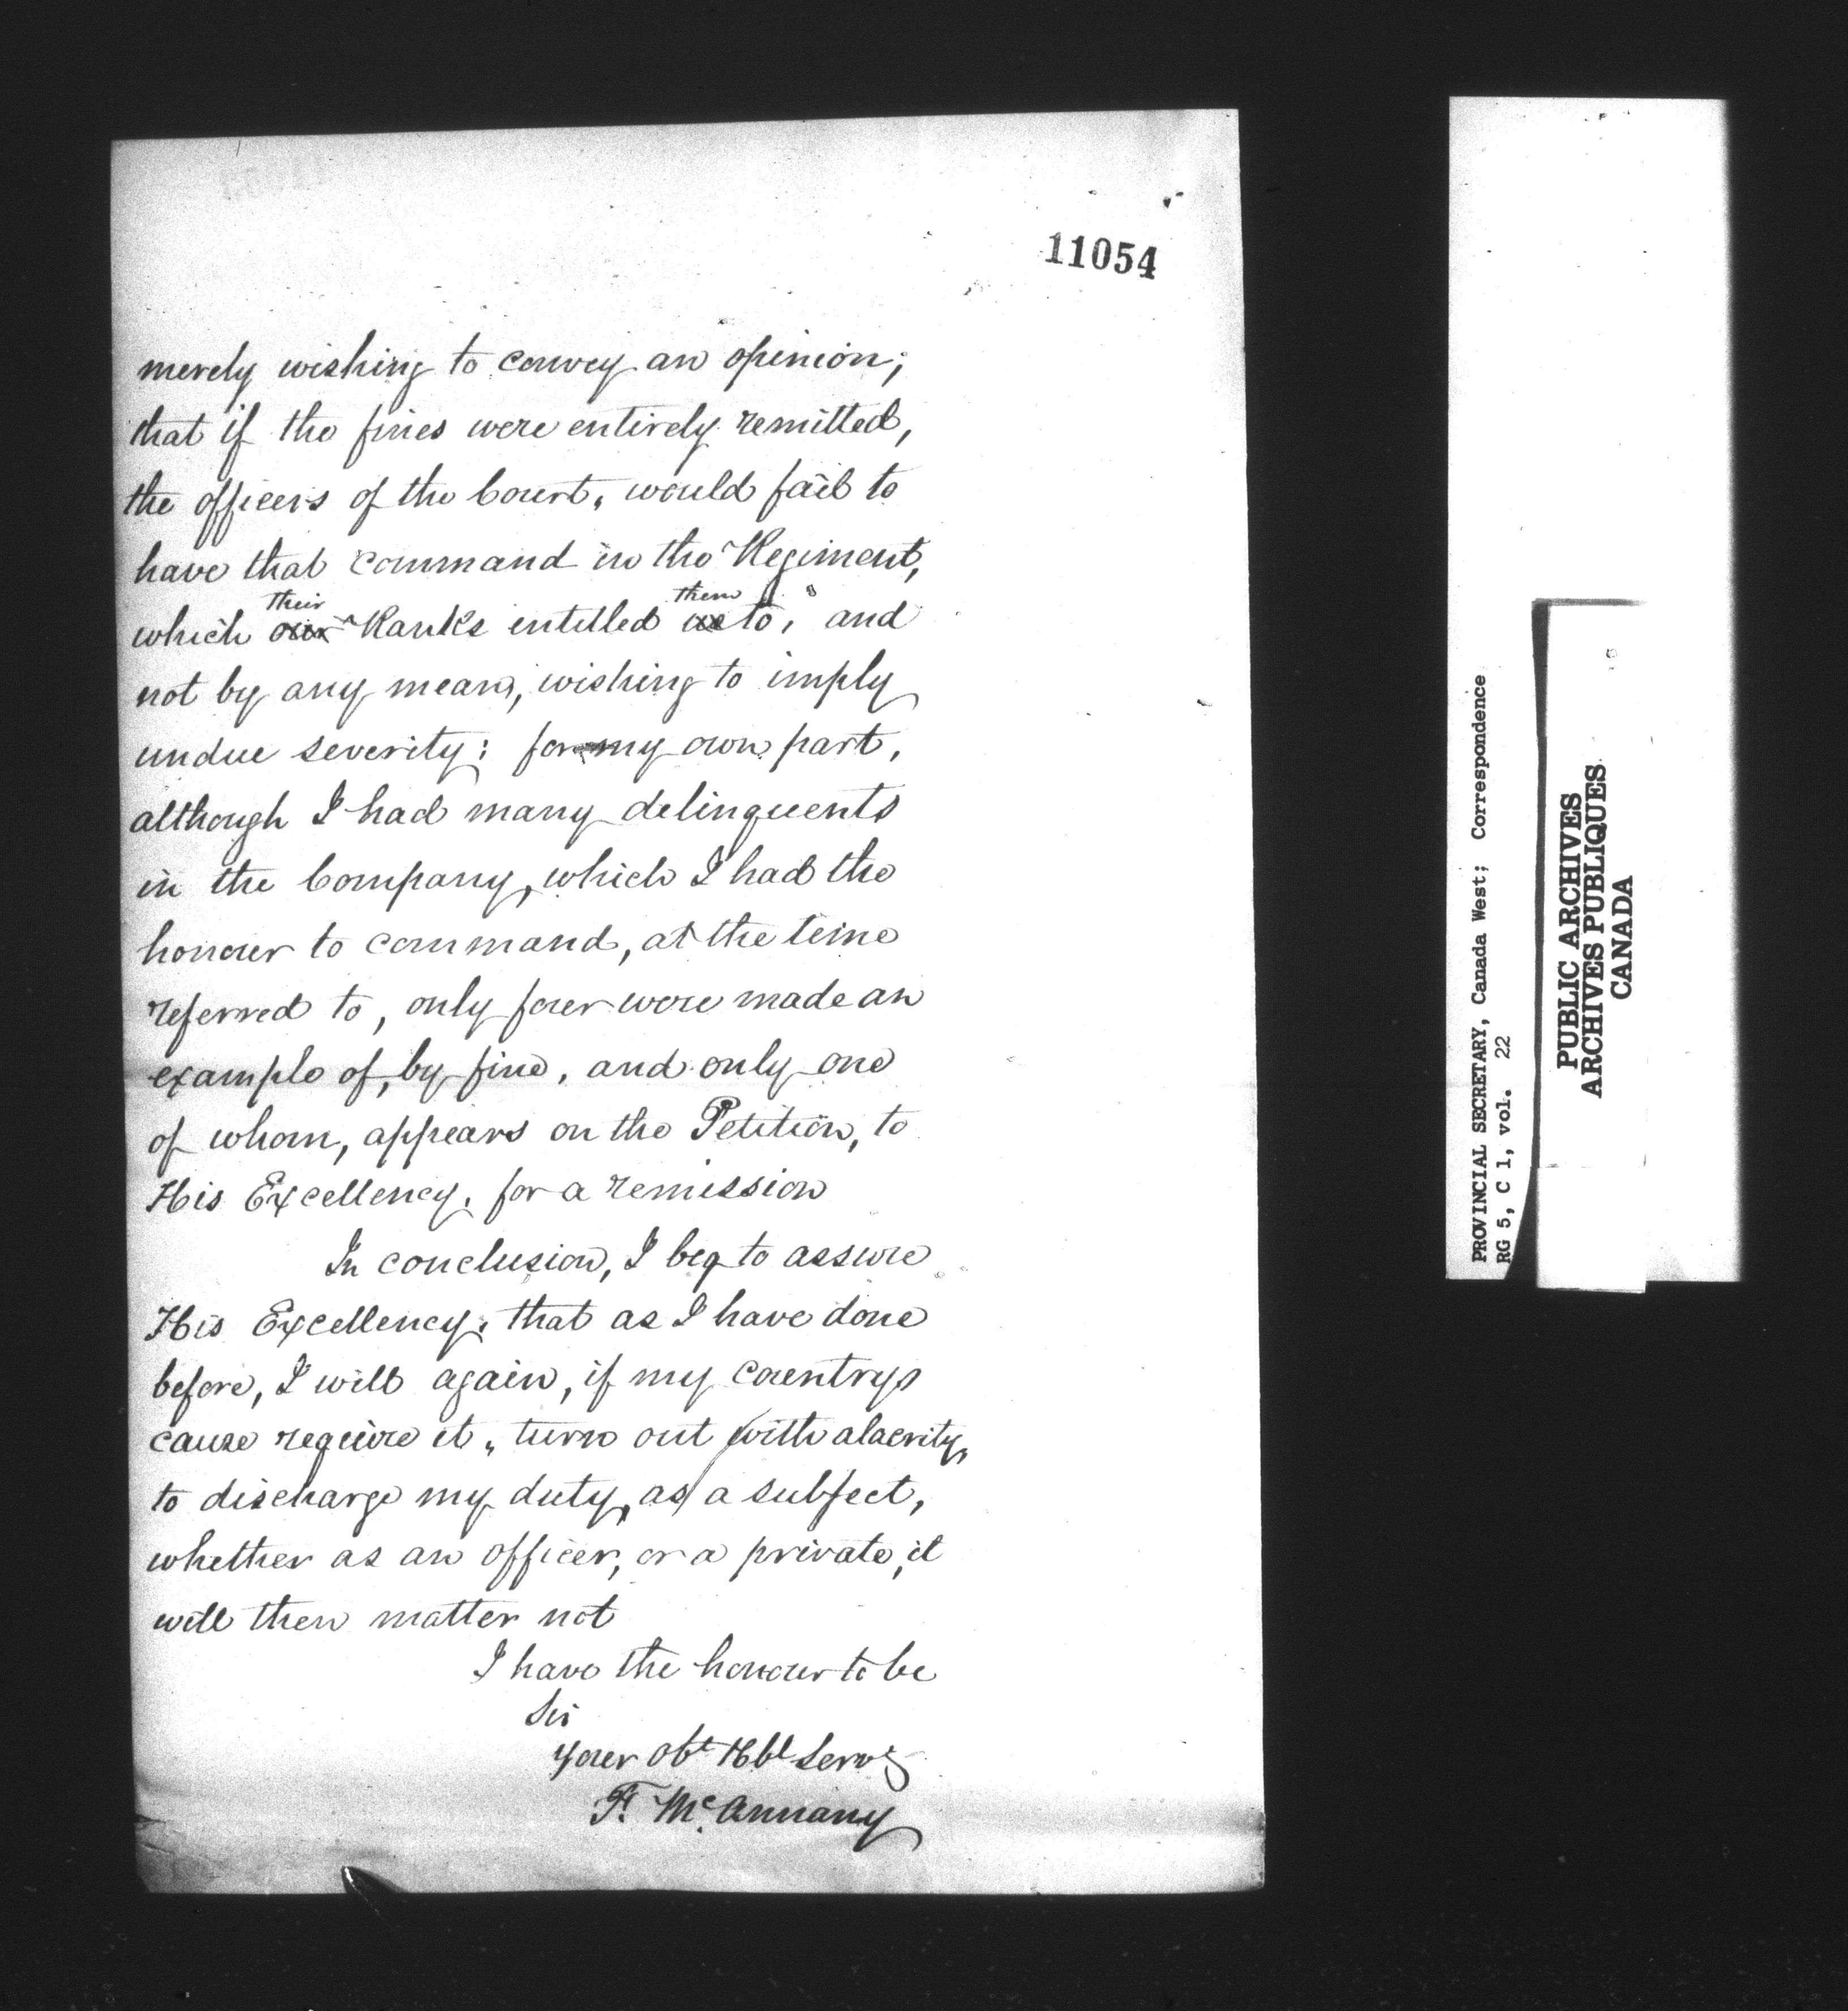 11054
merely wishing to convey an opinion;
that if the fines were entirely remitted,
the officers of the Court, would fail to
have that command in the Regiment,
which our their Ranks intitled us them to, and
not by any means, wishing to imply
undue severity; for my own part,
although I had many delinquents
in the Company, which I had the
honour to command, at the time
referred to, only four were made an
example of, by fine, and only one
of whom, appears on the Petition, to
His Excellency, for a remission
In conclusion, I beg to assure
His Excellency, that as I have done
before, I will again, if my Countrys
cause require it, turn out with alacrity,
to discharge my duty, as a subject,
whether as an officer, or a private, it
will then matter not
I have the honour to be
Sir
Your Obt Hbl Servt
T. McAnnany
PROVINCIAL SECRETARY, Canada West; Correspondence
RG 5, C 1, vol. 22
PUBLIC ARCHIVES
ARCHIVES PUBLIQUES
CANADA